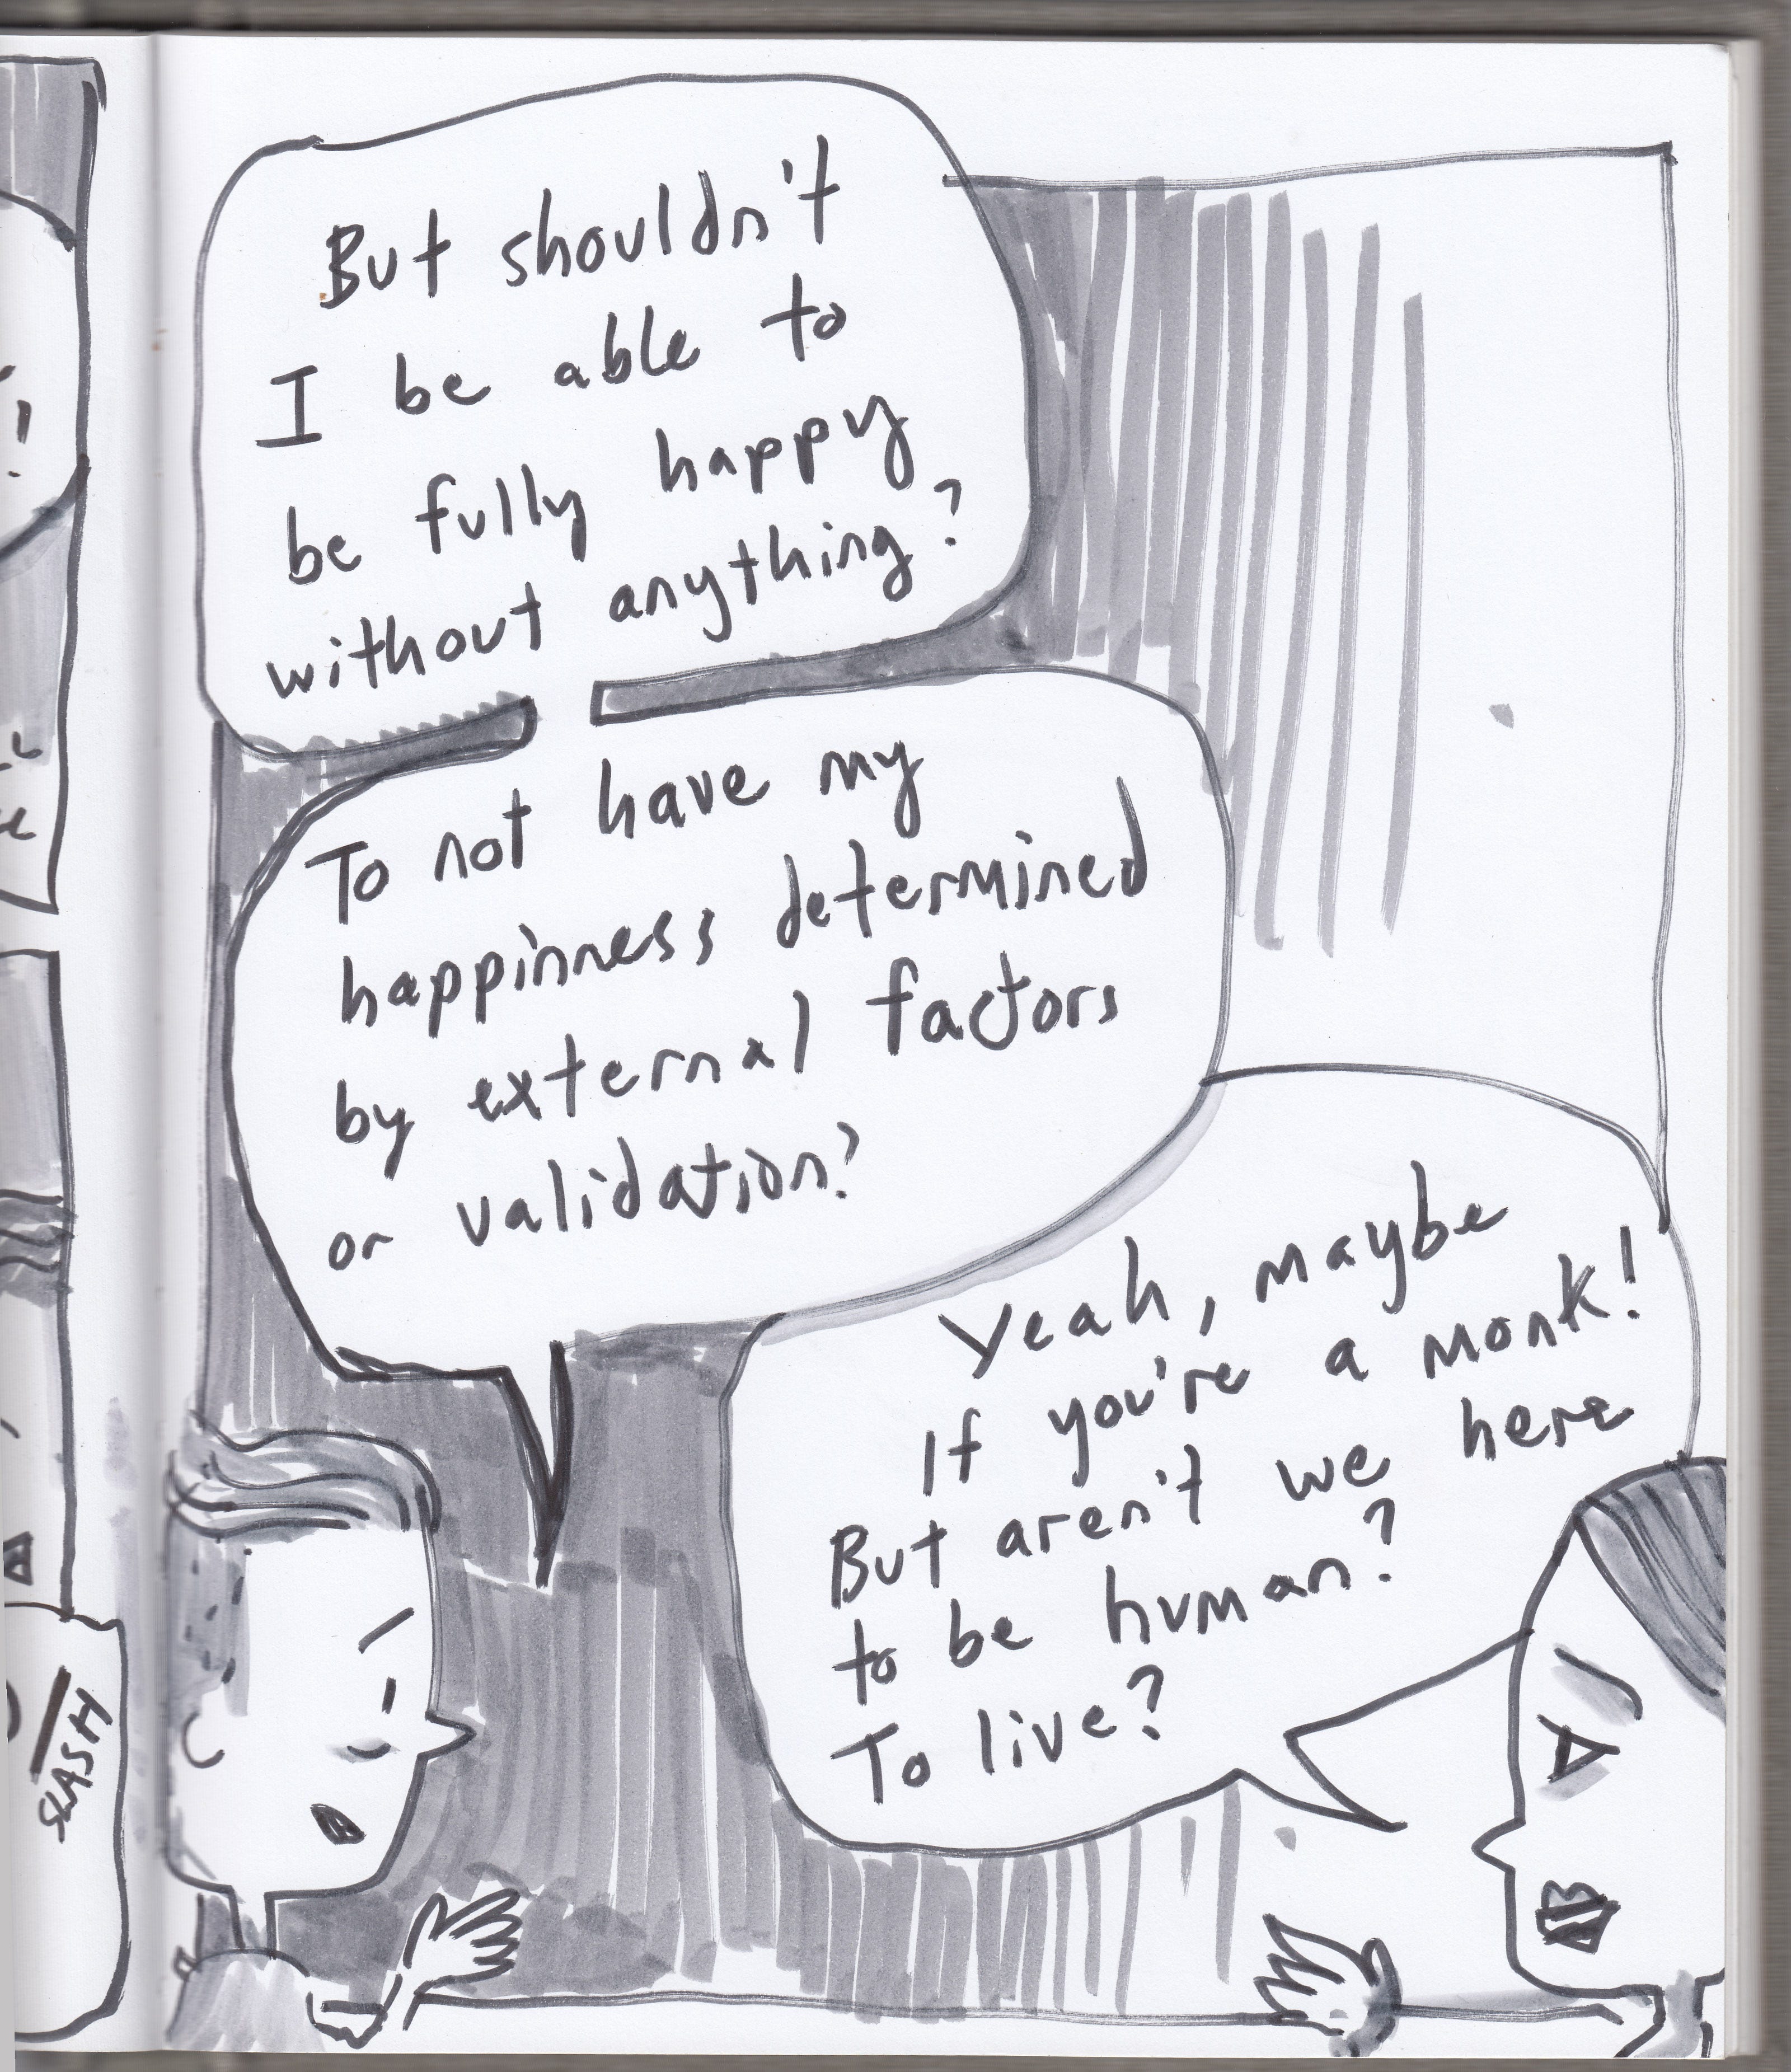 But shouldn't
I be able to
be fully happy
without anything?
To not have my
happinness determined
by external factors
or validation?
Yeah, maybe
If you're a monk!
But aren't we here
to be human?
To live?
SLASH